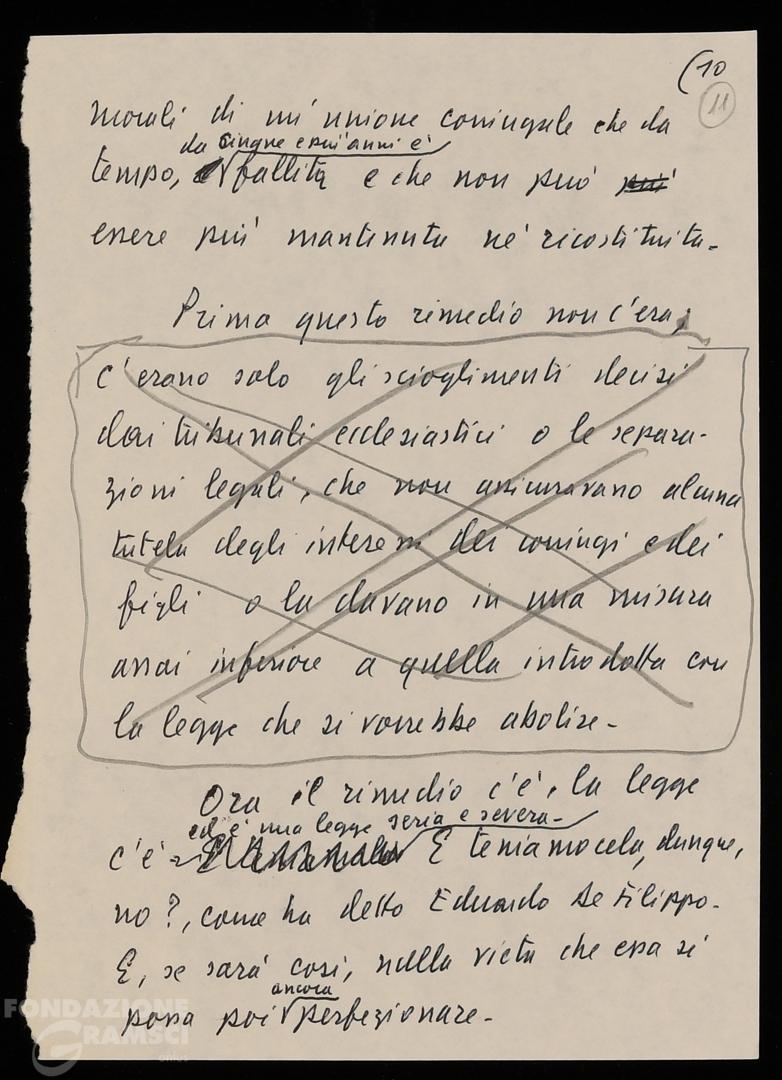 (10
11
morali di un'unione coniugale che da
da cinque e più anni è
tempo, è fallita e che non può più
essere più mantenuta né ricostituita.
Prima questo rimedio non c'era,
c'erano solo gli scioglimenti decisi
dai tribunali ecclesiastici o le separa-
zioni legali, che non assicuravano alcuna
tutela degli interessi dei coniugi e dei
figli o la davano in una misura
assai inferiore a quella introdotta con
la legge che si vorrebbe abolire.
Ora il rimedio c'è, la legge
ed è una legge seria e severa.
c'è E teniamocela, dunque,
no?, come ha detto Eduardo De Filippo.
E, se sarà così, nulla vieta che essa si
ancora
possa poi perfezionare.
FONDAZIONE
GRAMSCI
onlus